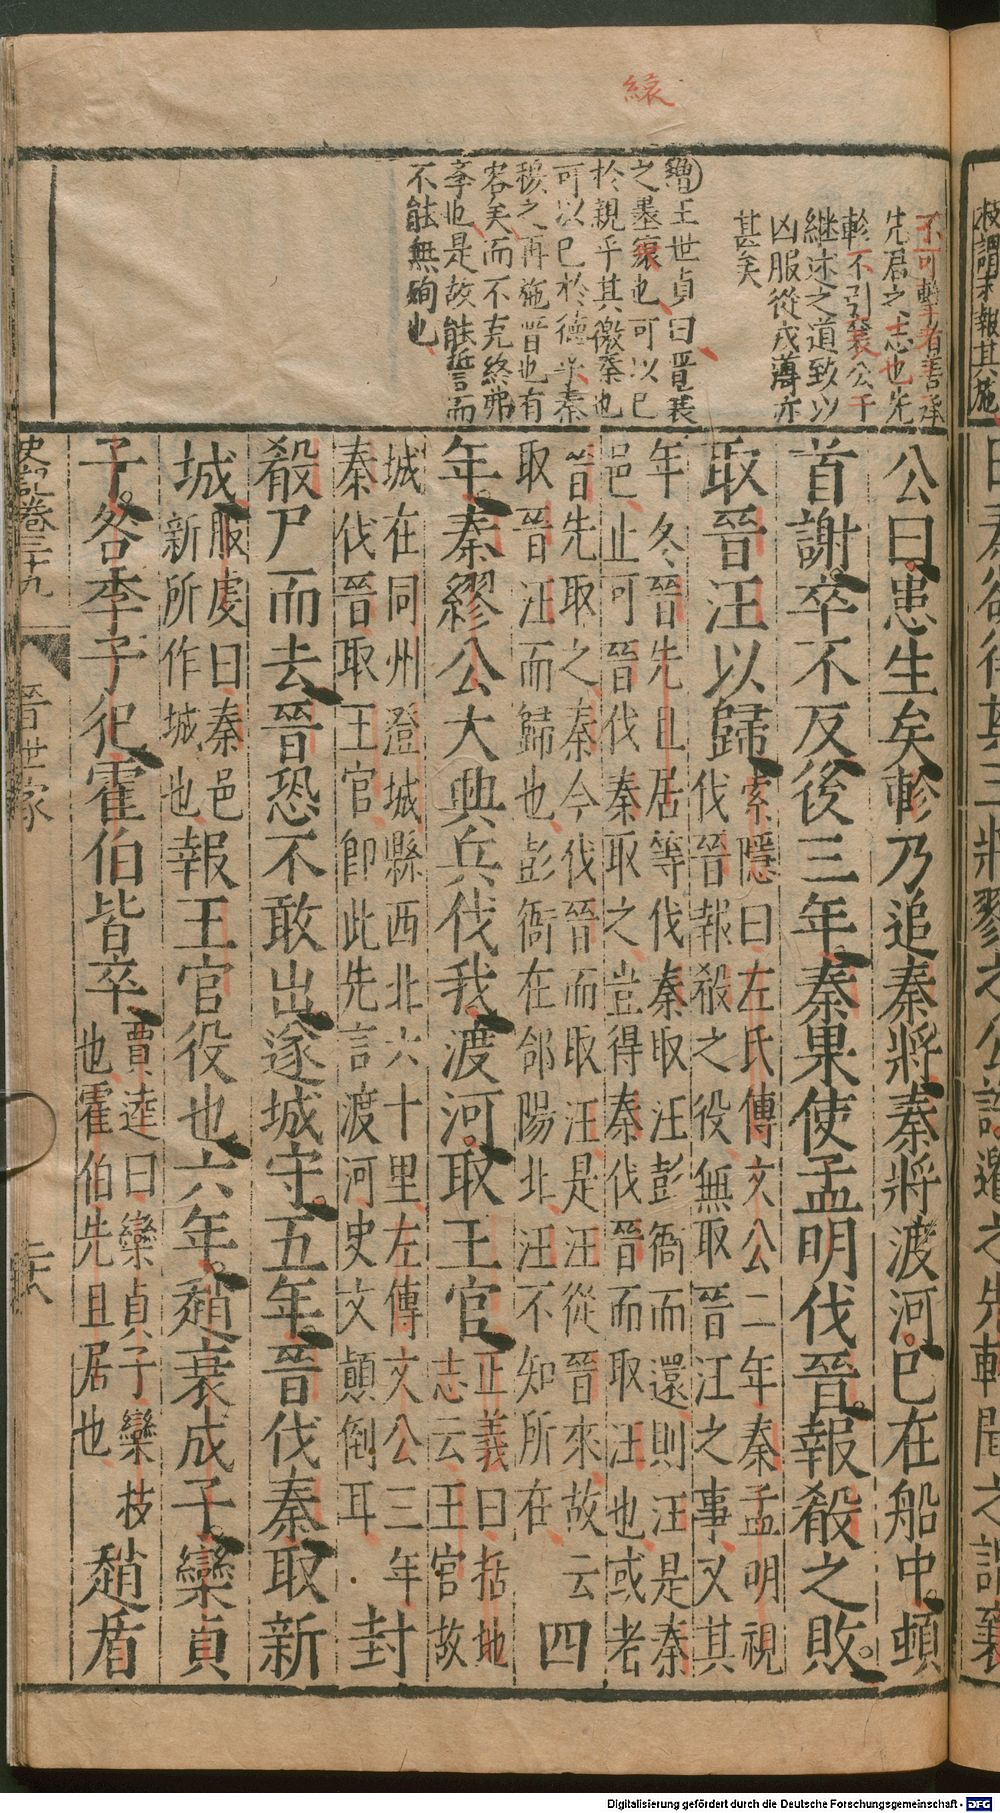 縗
不可擊者善承
先君之志也先
軫不引襄公于
継述之道致以
凶服從戎薄亦
甚矣
增王世貞曰晋襄
之墨縗也可以已
於親乎其徼秦也
可以已於德乎秦
穆之再施晋也有
容矣而不克終弗
孝也是故能誓而
不能無殉也
公曰患生矣軫乃追秦將秦將渡河已在船中頓
首謝卒不反後三年秦果使孟明伐晉報殽之敗
取晉汪以歸
索隱曰左氏傳文公二年秦孟明視
伐晉報殽之役無取晉汪之事又其
年冬晉先且居等伐秦取汪彭衙而還則汪是秦
邑止可晉伐秦取之豈得秦伐晉而取汪也或者
晉先取之秦今伐晉而取汪是汪從晉來故云
取晉汪而歸也彭衙在郃陽北汪不知所在
四
年秦繆公大興兵伐我渡河取王官
正義曰括地
志云王官故
城在同州澄城縣西北六十里左傳文公三年
秦伐晉取王官即此先言渡河史文顛倒耳
封
殽尸而去晉恐不敢出遂城守五年晉伐秦取新
城
服虔曰秦邑
新所作城也
報王官役也六年趙衰成子欒貞
子咎季子犯霍伯皆卒
賈逵曰欒貞子欒枝
也霍伯先且居也
趙盾
史記卷三十九
晉世家
Digitalisierung gefördert durch die Deutsche Forschungsgemeinschaft - DFG